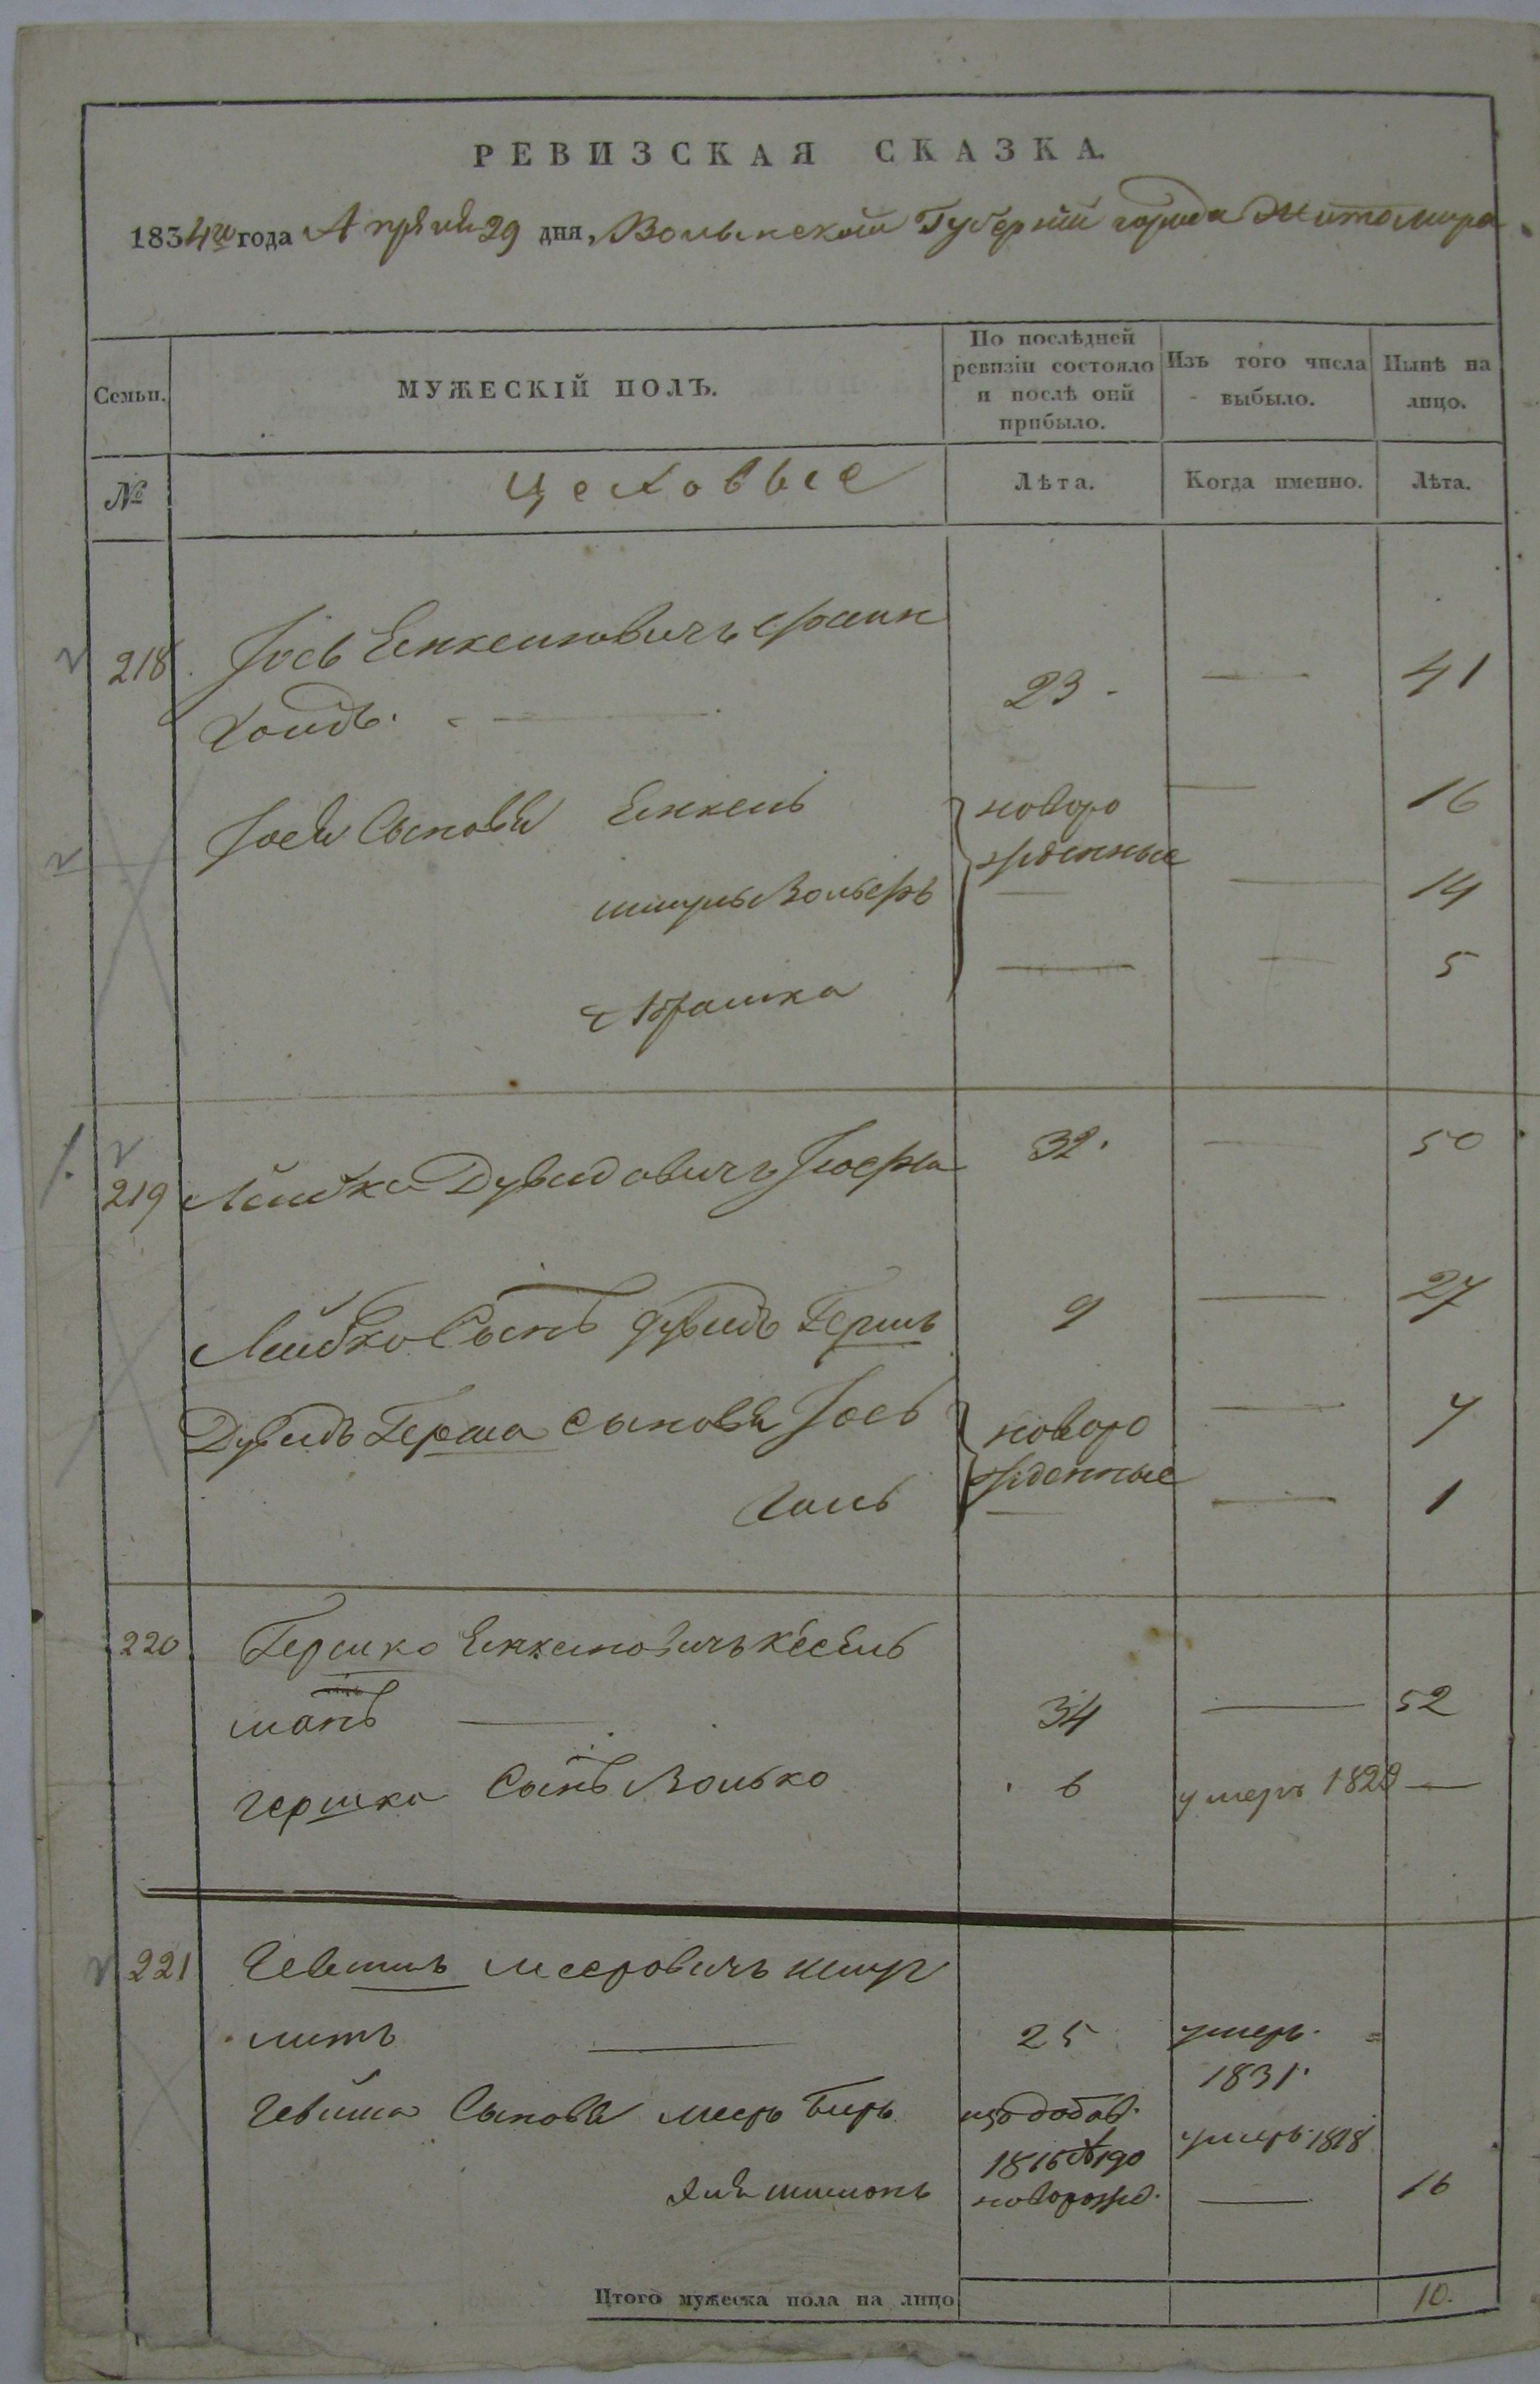 РЕВИЗСКАЯ СКАЗКА.
1834го года Апреля 29 дня, Волынской Губернiи города Житомира
Семьи.
МУЖЕСКIЙ ПОЛЪ.
По послѣдней ревизiи состояло и послѣ оной прибыло.
Изъ того числа выбыло.
Нынѣ на лицо.
№
Цеховые
Лѣта.
Когда именно.
Лѣта.
218 Iось Енкелювичъ
23 41
Iося Сынове Енкель новоро 16
жденные
Шмуль Вольфъ 14
Абрашка 5
219 Лейбко Дувидовичъ 32 50
Лейбко Сынъ Дувидъ Гершъ 9 27
Дувидъ Герша Сынове Iось новоро 7
жденные 1
220 Гершко Енкелювичъ Кесель
манъ 34 52
Гершка Сынъ Волько 6 умеръ 1829
221 Мееровичъ
25 умеръ
1831.
Сынове Мееръ Беръ изъ добав. умеръ 1818
1816 №190
Шимонъ новорожд. 16
Итого мужеска пола на лицо 10.